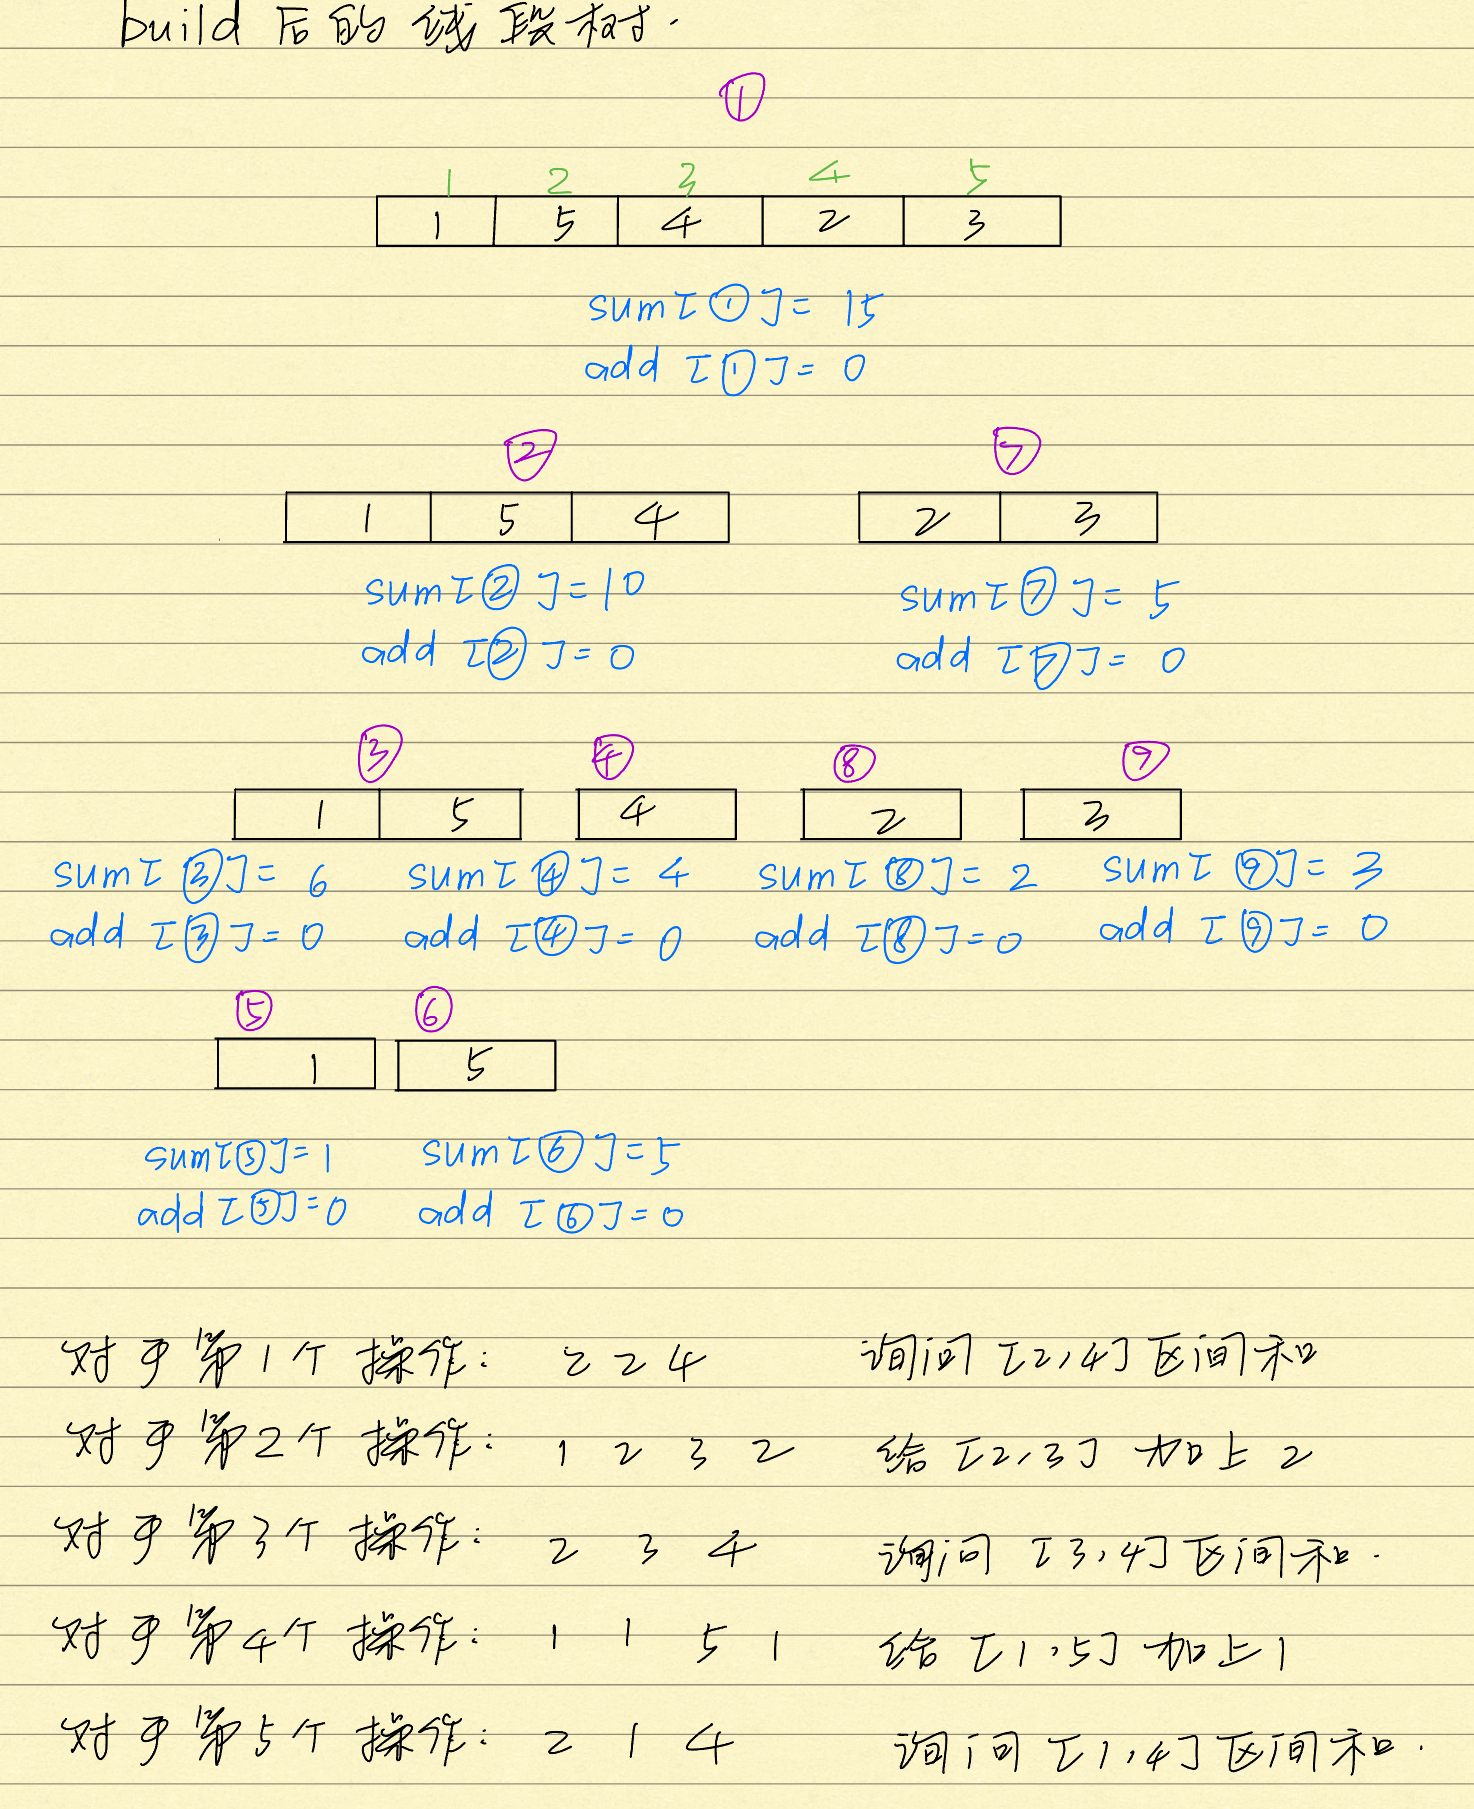 build 后的线段树.
①
1 2 3 4 5
1 5 4 2 3
sum[①]= 15
add [①]= 0
② ⑦
1 5 4 2 3
sum[②]=10 sum[⑦]= 5
add [②]=0 add [⑦]= 0
③ ④ ⑧ ⑨
1 5 4 2 3
sum[③]= 6 sum[④]= 4 sum[⑧]= 2 sum[⑨]= 3
add [③]=0 add [④]=0 add [⑧]=0 add [⑨]= 0
⑤ ⑥
1 5
sum[⑤]=1 sum[⑥]=5
add [⑤]=0 add [⑥]=0
对于第1个操作: 2 2 4 询问 [2,4]区间和
对于第2个操作: 1 2 3 2 给 [2,3] 加上 2
对于第3个操作: 2 3 4 询问 [3,4]区间和.
对于第4个操作: 1 1 5 1 给 [1,5] 加上1
对于第5个操作: 2 1 4 询问 [1,4]区间和.